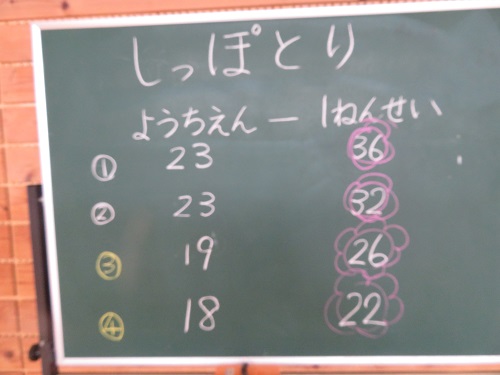 しっぽとり
ようちえん ー 1ねんせい
① 23 36
② 23 32
③ 19 26
④ 18 22